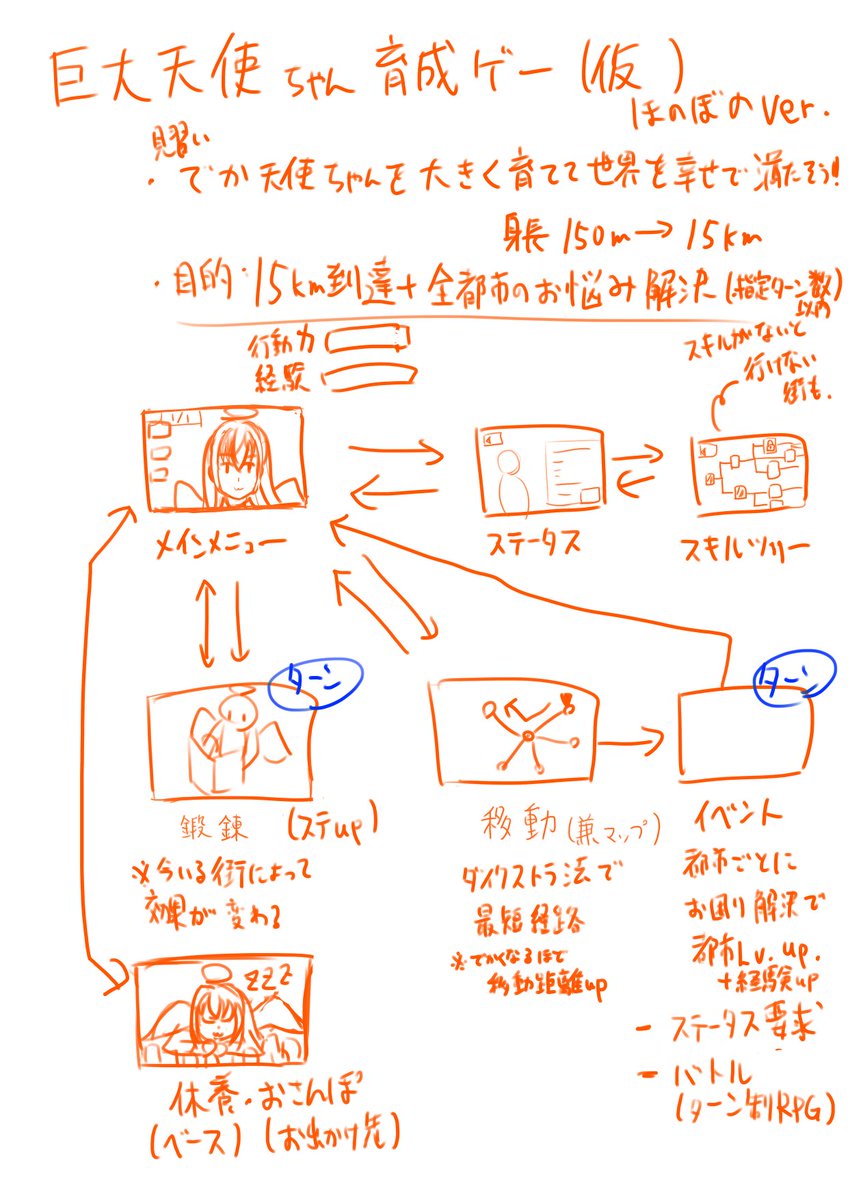 巨大天使ちゃん育成ゲー(仮)
ほのぼのver.
見習い
・でか天使ちゃんを大きく育てて世界を幸せで満たそう!
身長 150m→15km
・目的:15km到達+全都市のお悩み解決(指定ターン数以内)
行動力
経験
スキルがないと
行けない
街も.
1/1
メインメニュー
ステータス
スキルツリー
ターン
ターン
鍛錬 (ステup)
※今いる街によって
効果が変わる
移動(兼マップ)
ダイクストラ法で
最短経路
※でかくなるほど
移動距離up
イベント
都市ごとに
お困り解決で
都市Lv.up.
+経験up
- ステータス要求
- バトル
(ターン制RPG)
zzz
休養・おさんぽ
(ベース) (お出かけ先)